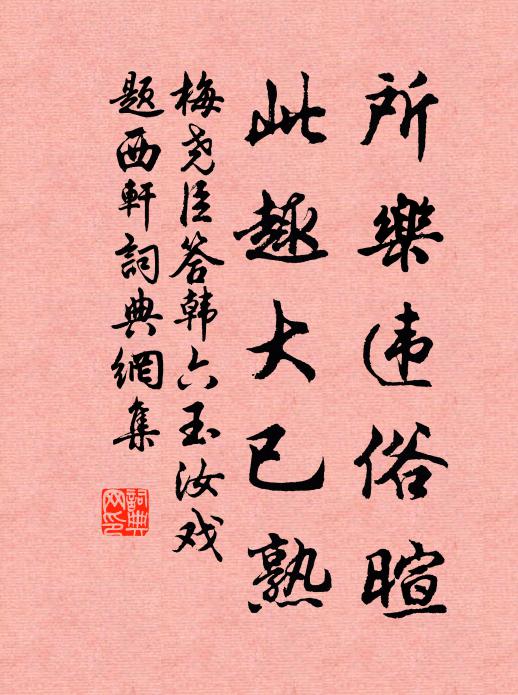 所樂违俗暄
此趣大已熟
梅尧臣答韩六玉汝戏
题西軒詞典網集
詞典
网印